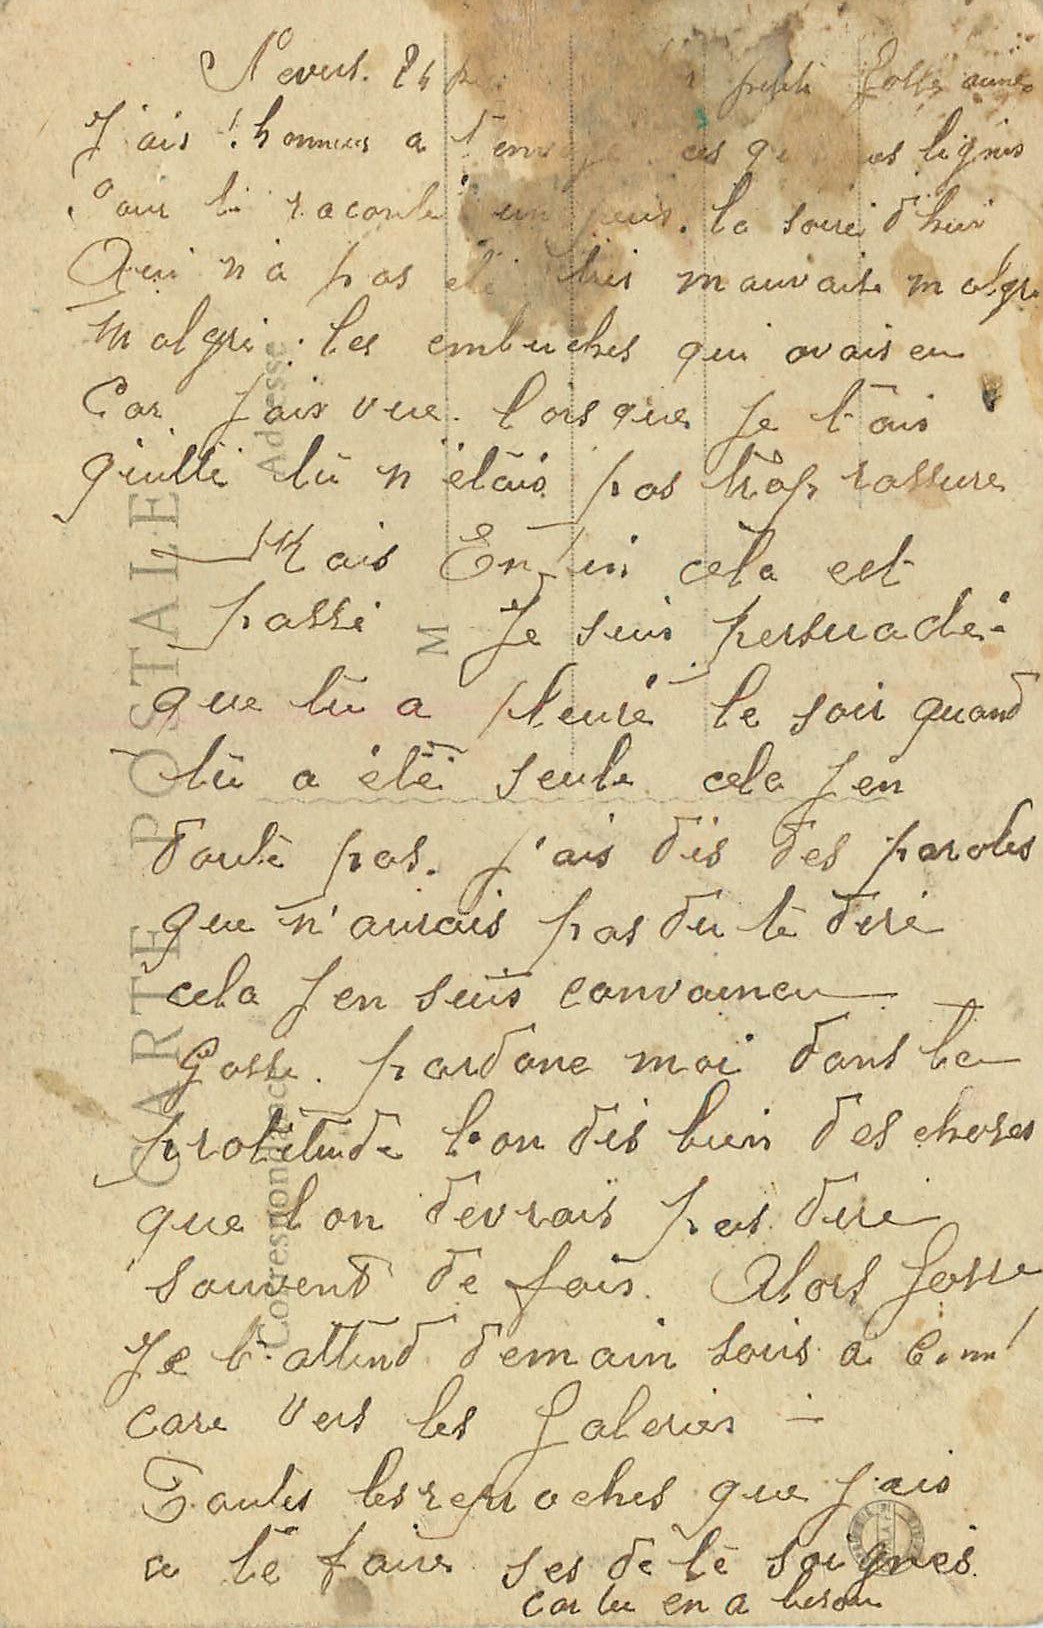 Nevers. 24 petite Gosse aimée
J'ais l'honneur a t'envoyé ces quelques lignes
Pour te raconté un peus. la soirée d'hier
Qui n'a pas été très mauvaise malgré
Malgré les embuches qui avais eu
Car j'ais vue lorsque je t'ais
quitté tu n'étais pas trop rassure
Mais Enfin cela est
passé Je suis persuadé
que tu a pleuré le soir quand
tu a été seule cela j'en
doute pas. j'ais dis des paroles
que n'aurais pas du te dire
cela j'en suis convaincu
Gosse. pardone moi dans la
l'on dis bien des choses
que l'on devrais pas dire
souvent de fois. Alors Gosse
Je t'attend demain soir a
care vers les Galeries
Toutes les reproches que j'ais
a te faire ses de te soignes.
car tu en a besoin
CARTE POSTALE
Correspondance
Adresse
M